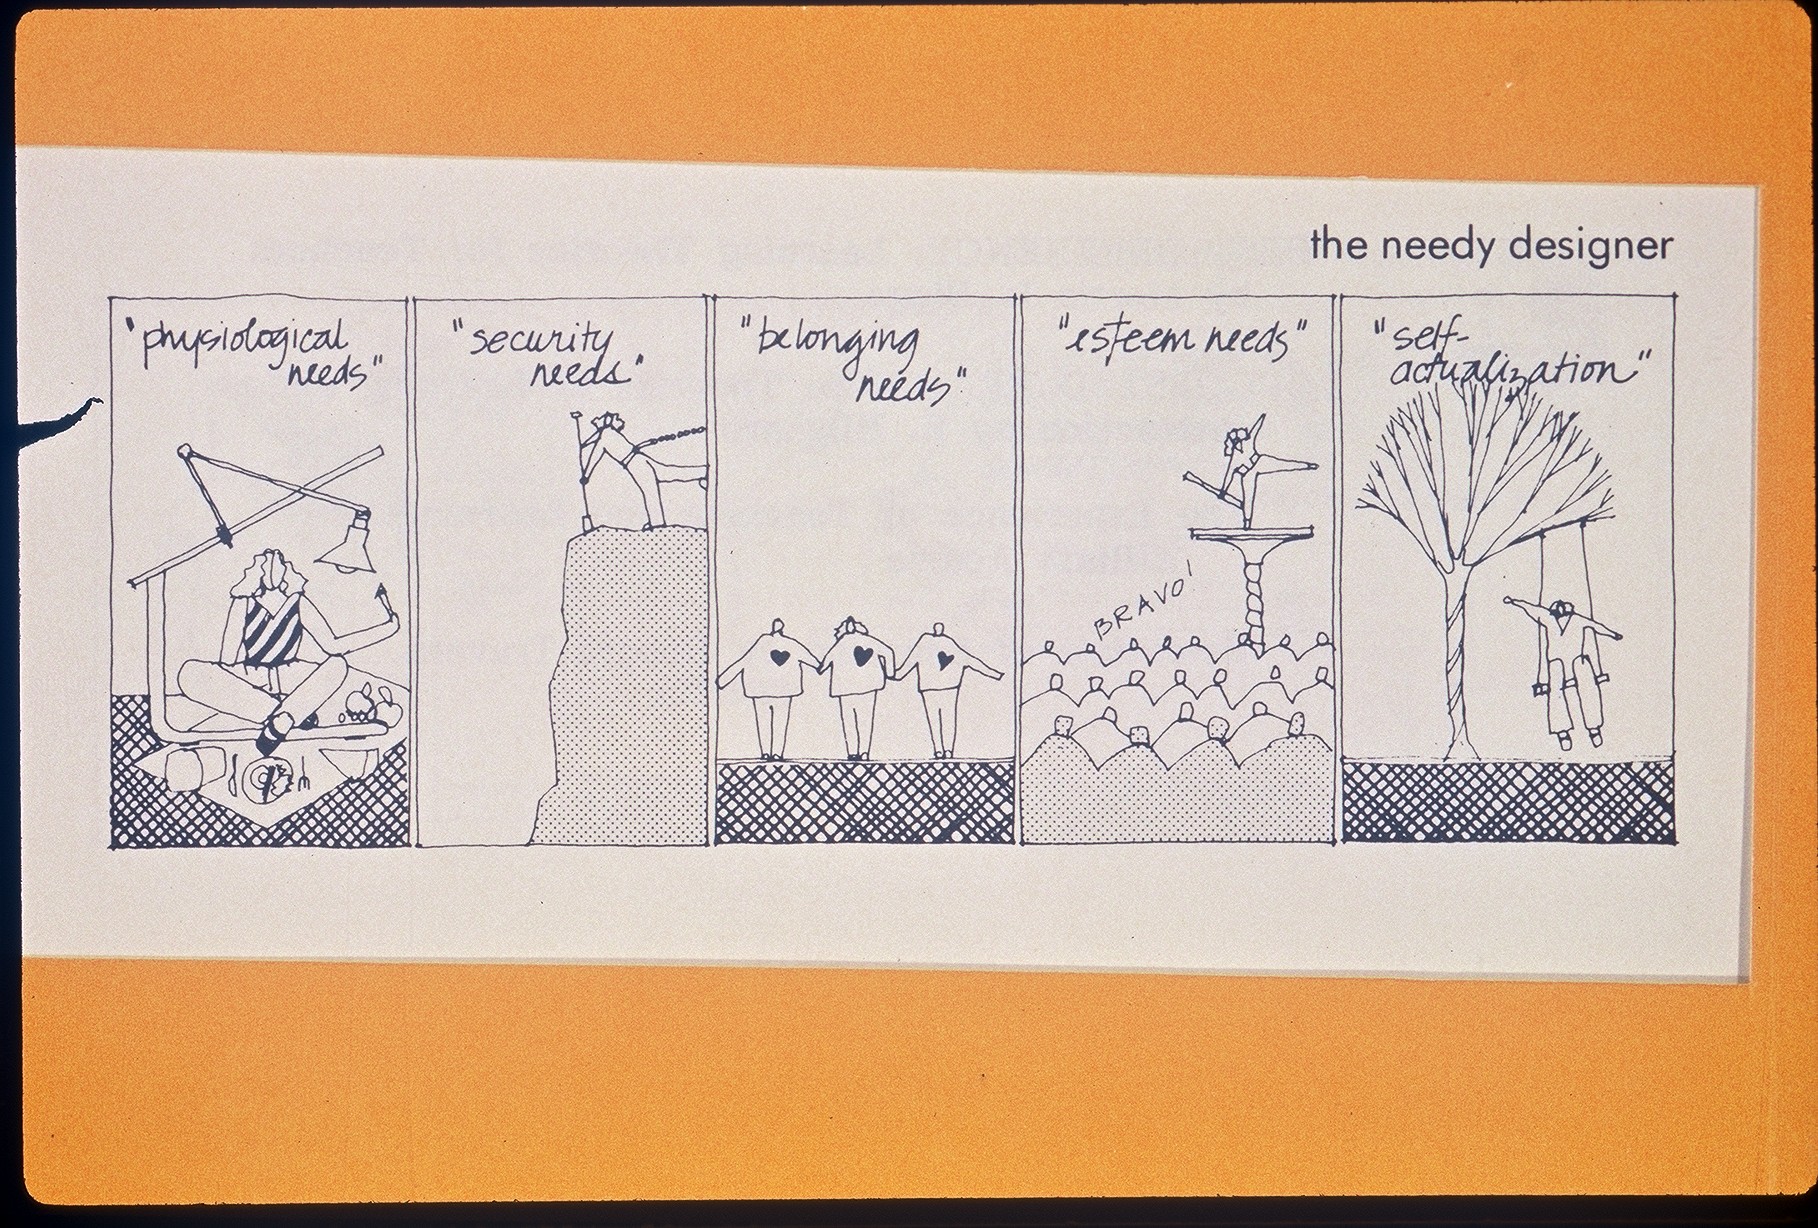 the needy designer
"physiological
needs"
"security
needs"
"belonging
needs"
"esteem needs"
"self-
actualization"
BRAVO!